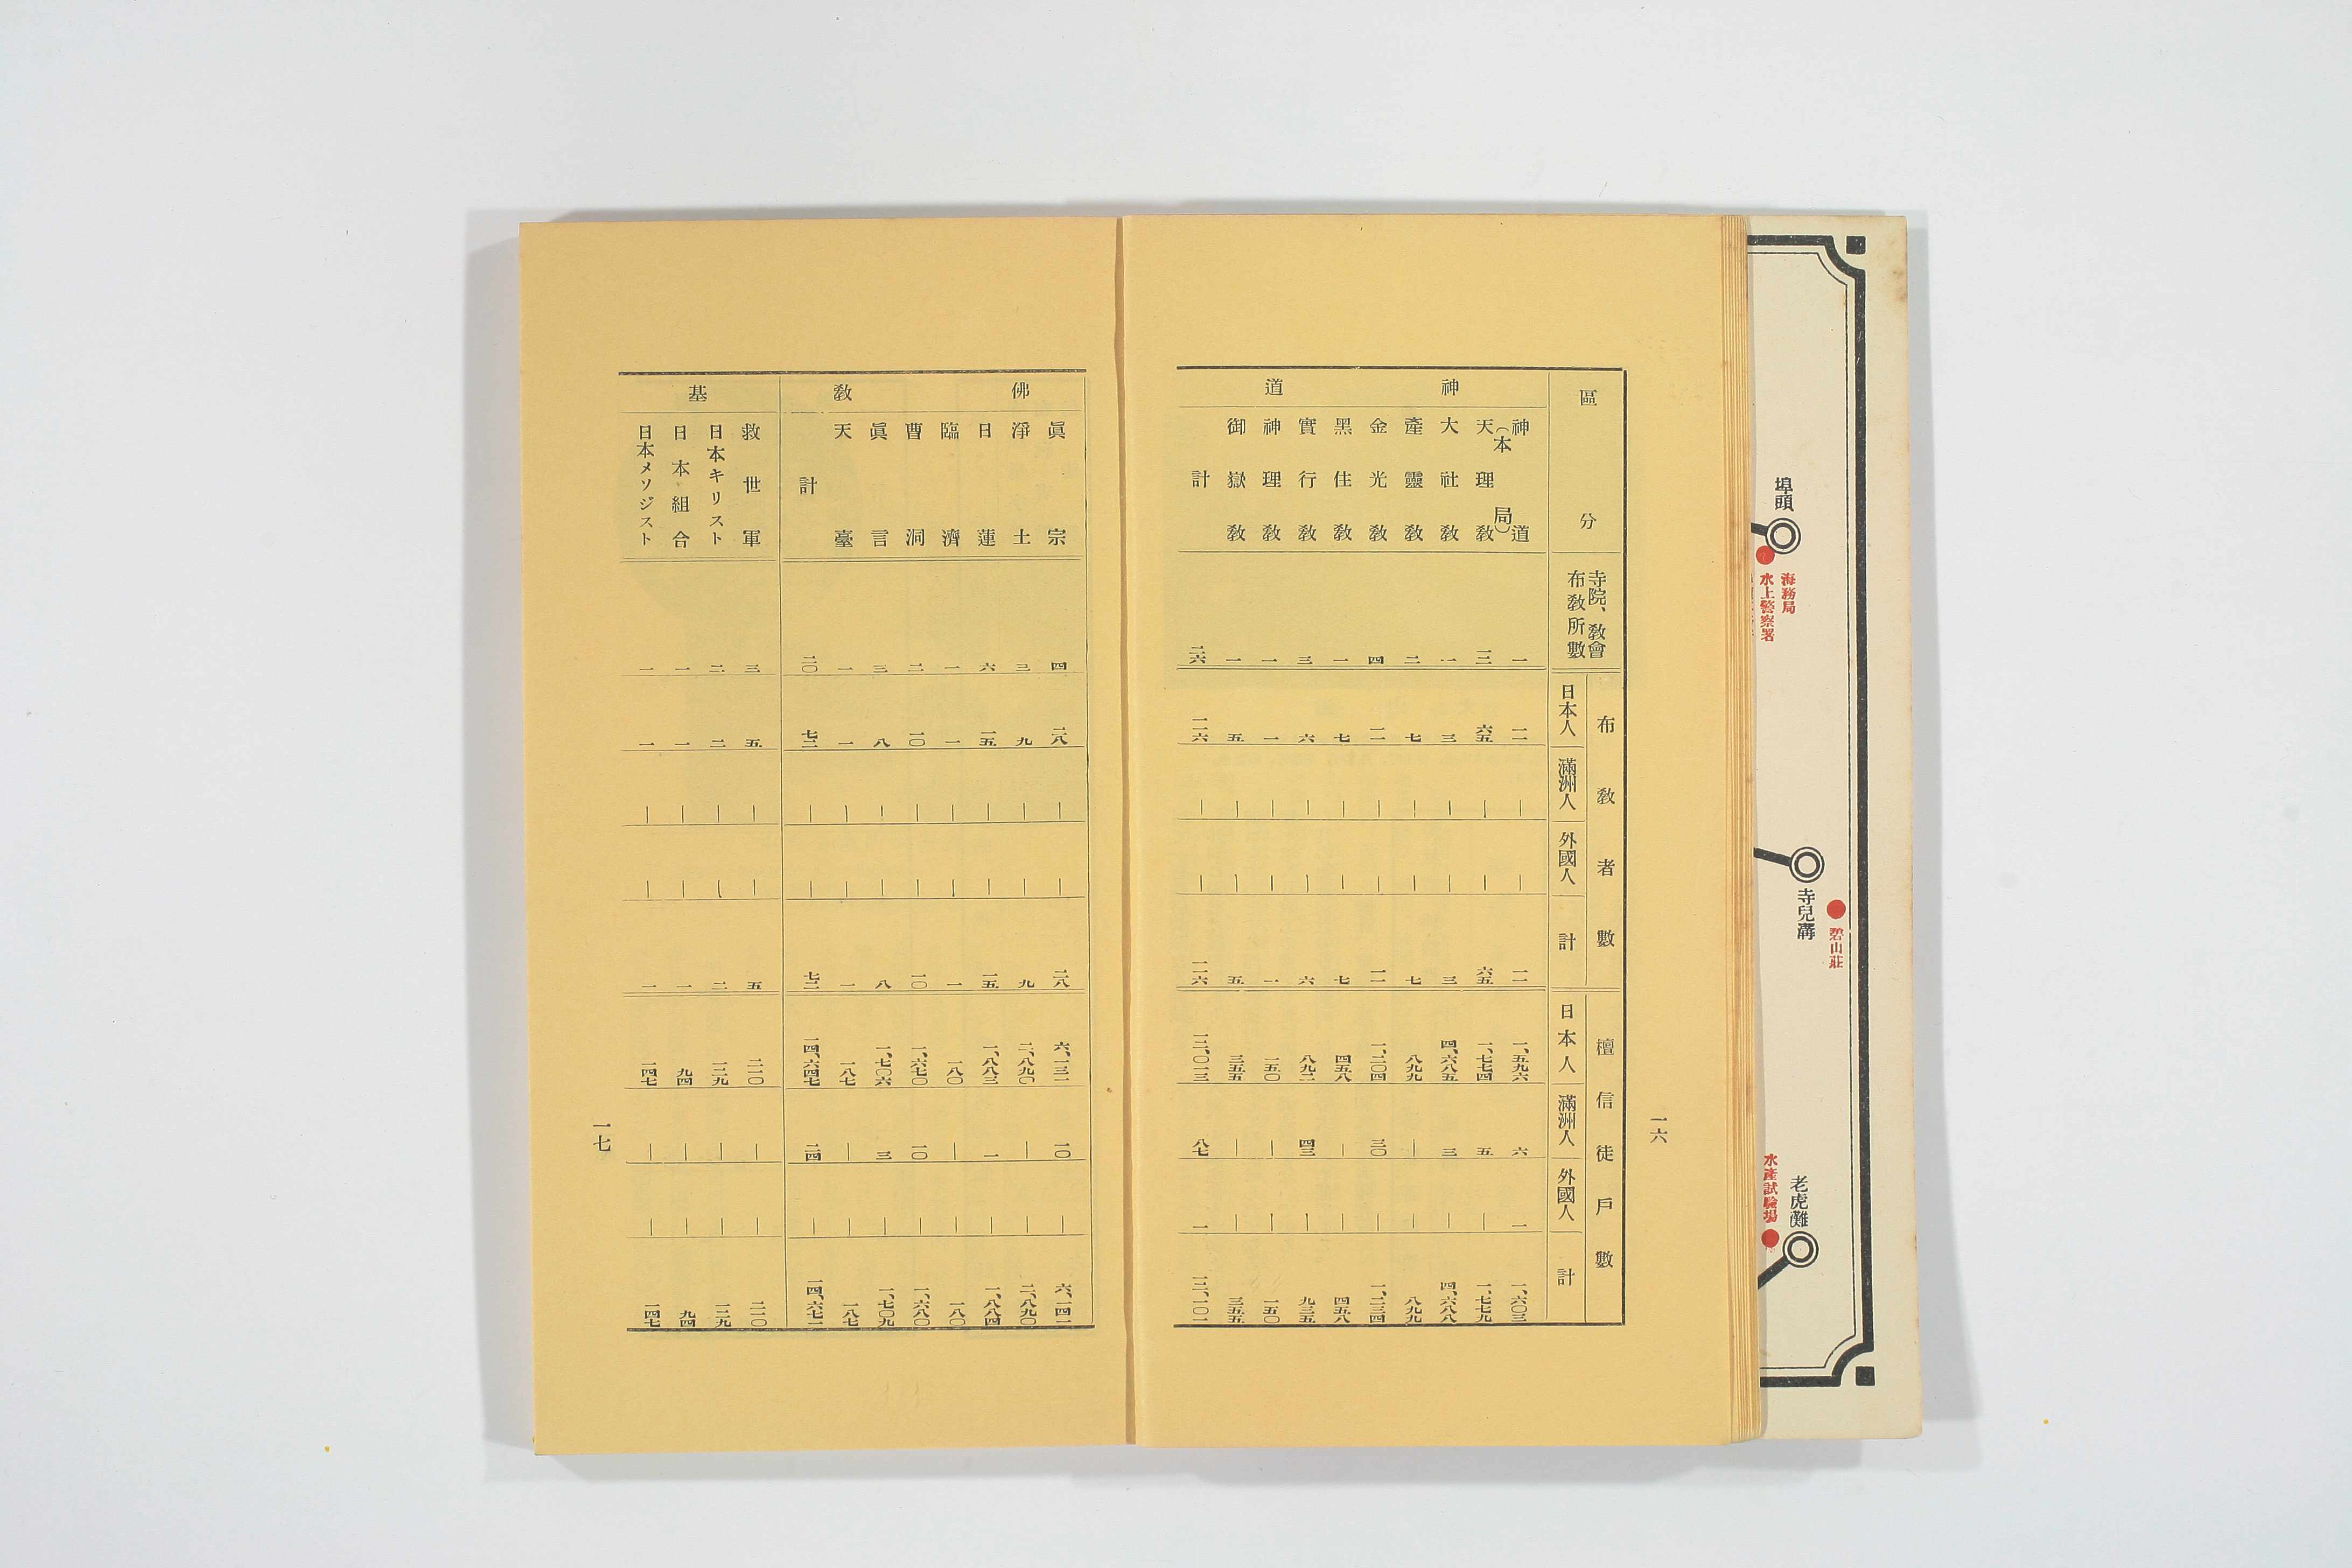 一六
區分
寺院、敎會
布敎所數
布敎者數
日本人
滿洲人
外國人
計
檀信徒戶數
日本人
滿洲人
外國人
計
神道
神道（本局） 一 一一 ｜ ｜ 一一 一、五九六 六 一 一、六〇三
天理敎 一二 六五 ｜ ｜ 六五 一、七七四 五 ｜ 一、七七九
大社敎 一 三 ｜ ｜ 三 四、六八五 三 ｜ 四、六八八
產靈敎 二 七 ｜ ｜ 七 八九九 ｜ ｜ 八九九
金光敎 四 一一 ｜ ｜ 一一 一、二〇四 三〇 ｜ 一、二三四
黑住敎 一 七 ｜ ｜ 七 四五八 ｜ ｜ 四五八
實行敎 三 六 ｜ ｜ 六 八九二 四三 ｜ 九三五
神理敎 一 一 ｜ ｜ 一 一五〇 ｜ ｜ 一五〇
御嶽敎 一 五 ｜ ｜ 五 三五五 ｜ ｜ 三五五
計 二六 一一六 ｜ ｜ 一一六 一二、〇一三 八七 一 一二、一〇一
佛敎
眞宗 四 二八 ｜ ｜ 二八 六、一三一 一〇 ｜ 六、一四一
淨土 三 九 ｜ ｜ 九 二、八九〇 ｜ ｜ 二、八九〇
日蓮 六 一五 ｜ ｜ 一五 一、八八三 一 ｜ 一、八八四
臨濟 一 一 ｜ ｜ 一 一八〇 ｜ ｜ 一八〇
曹洞 二 一〇 ｜ ｜ 一〇 一、六七〇 一〇 ｜ 一、六八〇
眞言 三 八 ｜ ｜ 八 一、七〇六 三 ｜ 一、七〇九
天臺 一 一 ｜ ｜ 一 一八七 ｜ ｜ 一八七
計 二〇 七二 ｜ ｜ 七二 一四、六四七 二四 ｜ 一四、六七一
基
救世軍 三 五 ｜ ｜ 五 二一〇 ｜ ｜ 二一〇
日本キリスト 二 二 ｜ ｜ 二 一二九 ｜ ｜ 一二九
日本組合 一 一 ｜ ｜ 一 九四 ｜ ｜ 九四
日本メソジスト 一 一 ｜ ｜ 一 一四七 ｜ ｜ 一四七
一七
埠頭
海務局
水上警察署
寺兒溝
碧山莊
老虎灘
水產試驗場